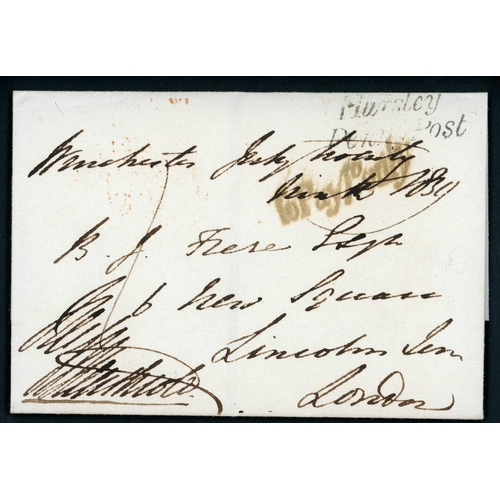 Hursley
Penny Post
Winchester July twenty
nine th 1839
To Pay 1d Only
B. J. Frere Esqr
6 New Square
Lincolns Inn
London